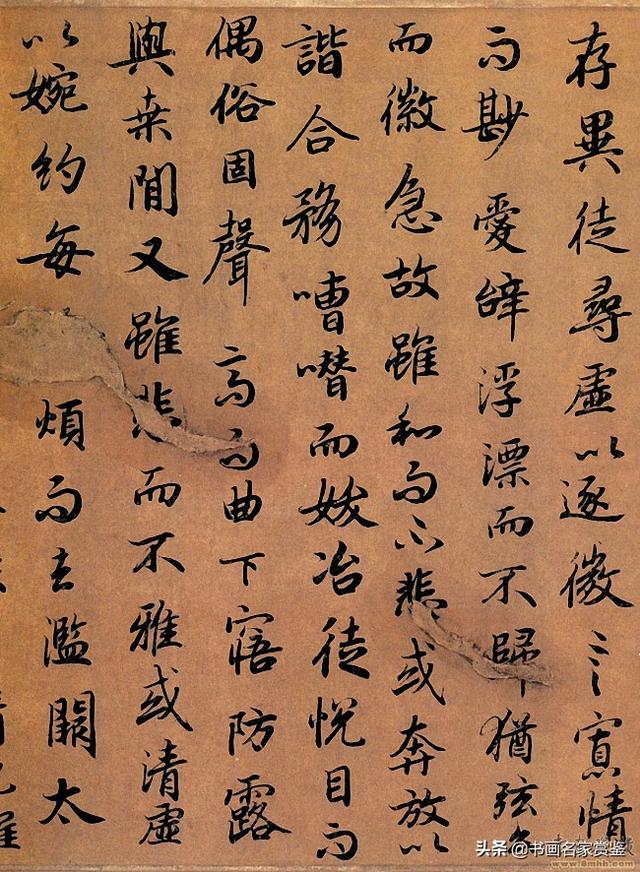 存異徒尋虛以逐微言寡情
而尠愛辝浮漂而不歸猶弦么
而徽急故雖和而不悲或奔放以
諧合務嘈囋而妖冶徒悅目而
偶俗固聲高而曲下寤防露
與桑間又雖悲而不雅或清虛
以婉約每煩而去濫闕太
头条 @书画名家赏鉴